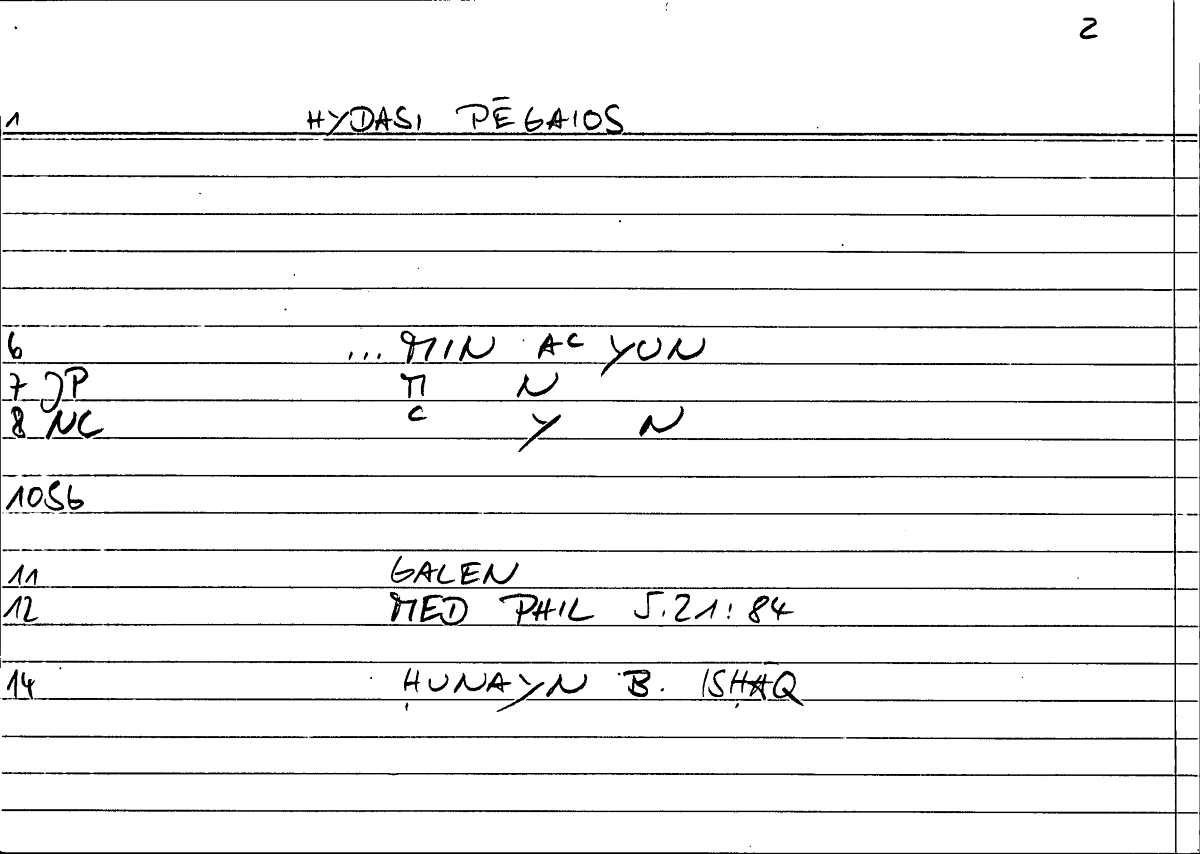 2
1 HYDASI PĒGAIOS
6 ... MIN AC YUN
7 JP M N
8 NC C Y N
10SB
11 GALEN
12 MED PHIL 5.21: 84
14 ḤUNAYN B. ISḤĀQ